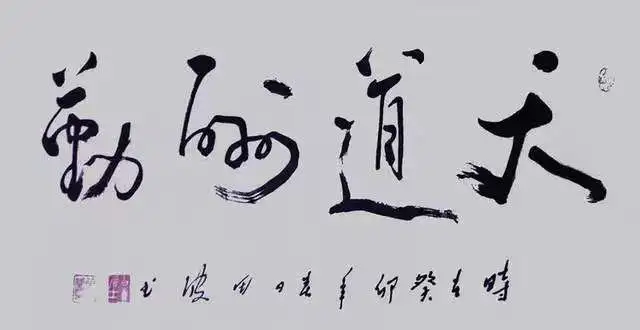 天道酬勤
時在癸卯年春日田波书